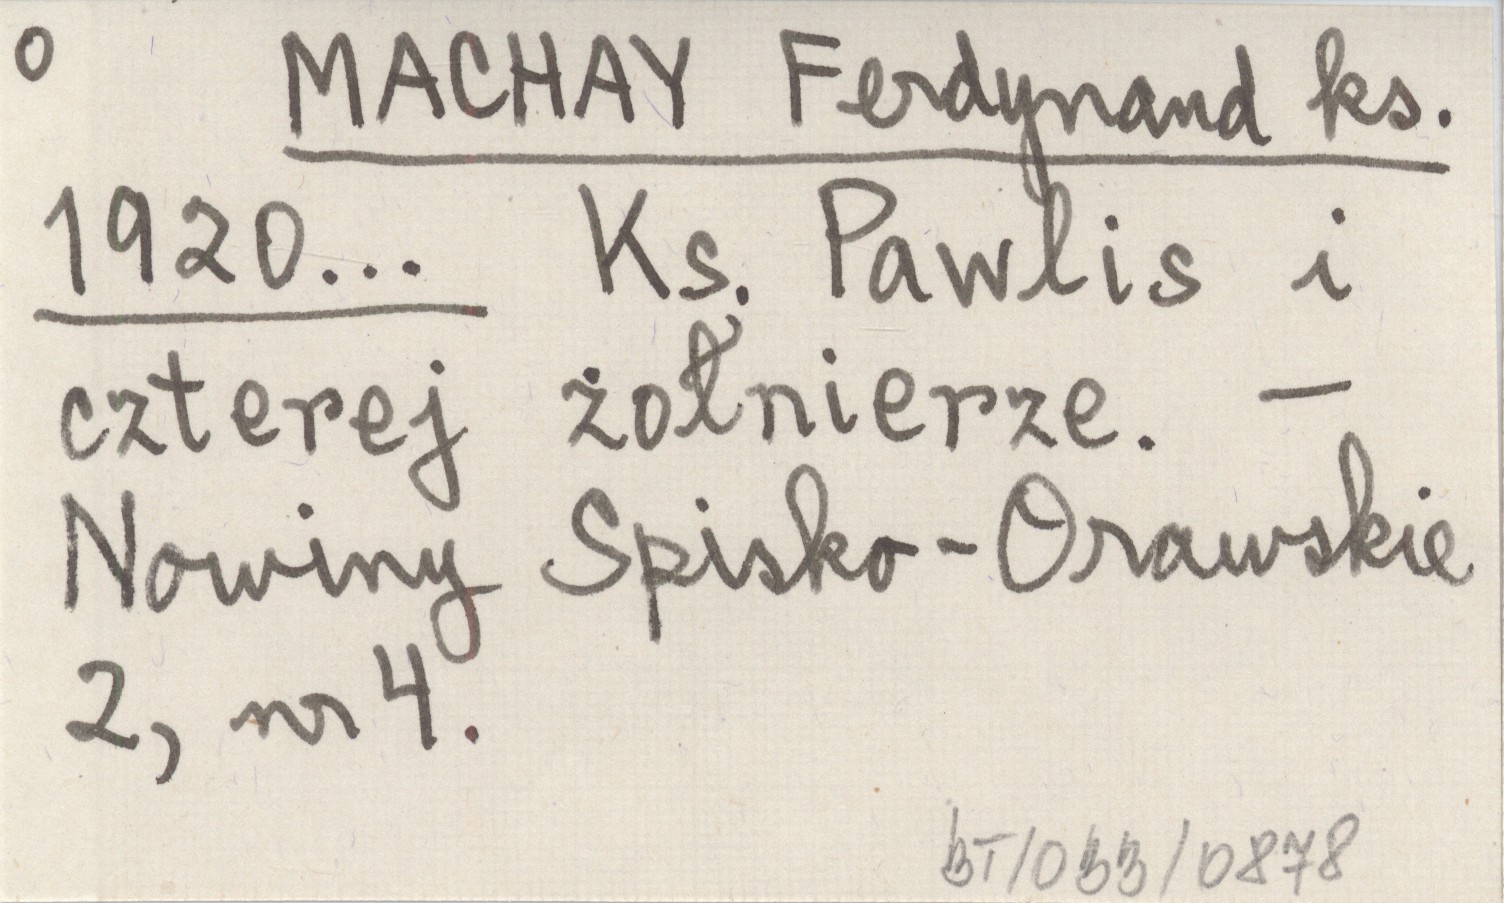 o MACHAY Ferdynand ks.
1920... Ks. Pawlis i
czterej żołnierze. —
Nowiny Spisko-Orawskie
2, nr 4.
BT/033/0878